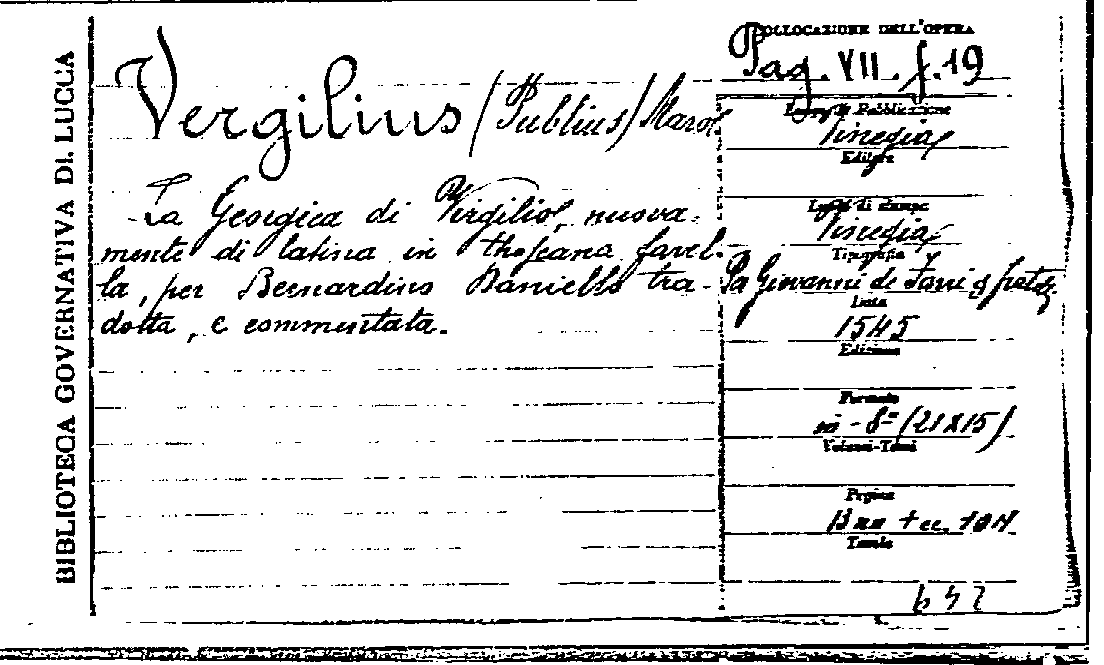 BIBLIOTECA GOVERNATIVA DI LUCCA
Vergilius (Publius) Maro
La Georgica di Virgilio, nuova-
mente di latina in thoscana favel-
la, per Bernardino Daniello tra-
dotta, e commentata.
COLLOCAZIONE DELL'OPERA
Pag. VII. f. 19
Luogo di Pubblicazione
Vinegia
Editore
Luogo di stampa
Vinegia
Tipografia
Pa Giovanni de Farri
Data
1545
Edizione
Formato
in-8º (21x15)
Volumi-Tomi
Pagine
+ cc. 104
Tavole
642